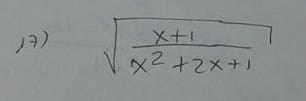 17) √((x+1)/(x²+2x+1))